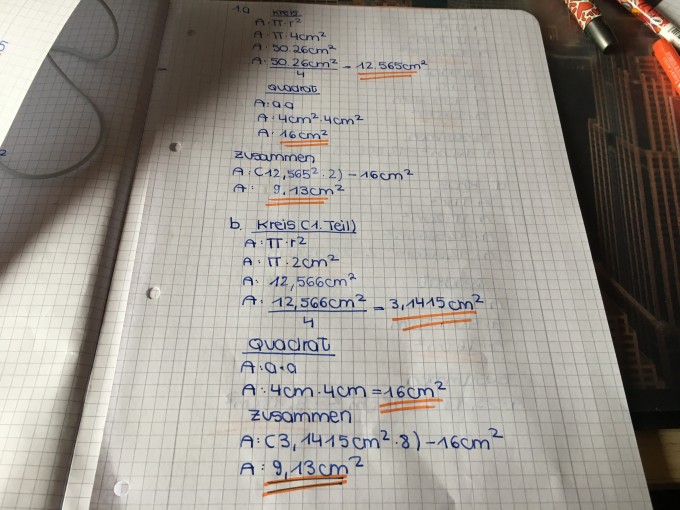 1a Kreis
A: π·r²
A: π·4cm²
A: 50.26cm²
A: 50.26cm²/4 = 12.565cm²
Quadrat
A: a·a
A: 4cm²·4cm²
A: 16cm²
Zusammen
A: (12,565²·2) - 16cm²
A: 9,13cm²
b. Kreis (1. Teil)
A: π·r²
A: π·2cm²
A: 12,566cm²
A: 12,566cm²/4 = 3,1415cm²
Quadrat
A: a·a
A: 4cm·4cm = 16cm²
Zusammen
A: (3,1415cm²·8) - 16cm²
A: 9,13cm²